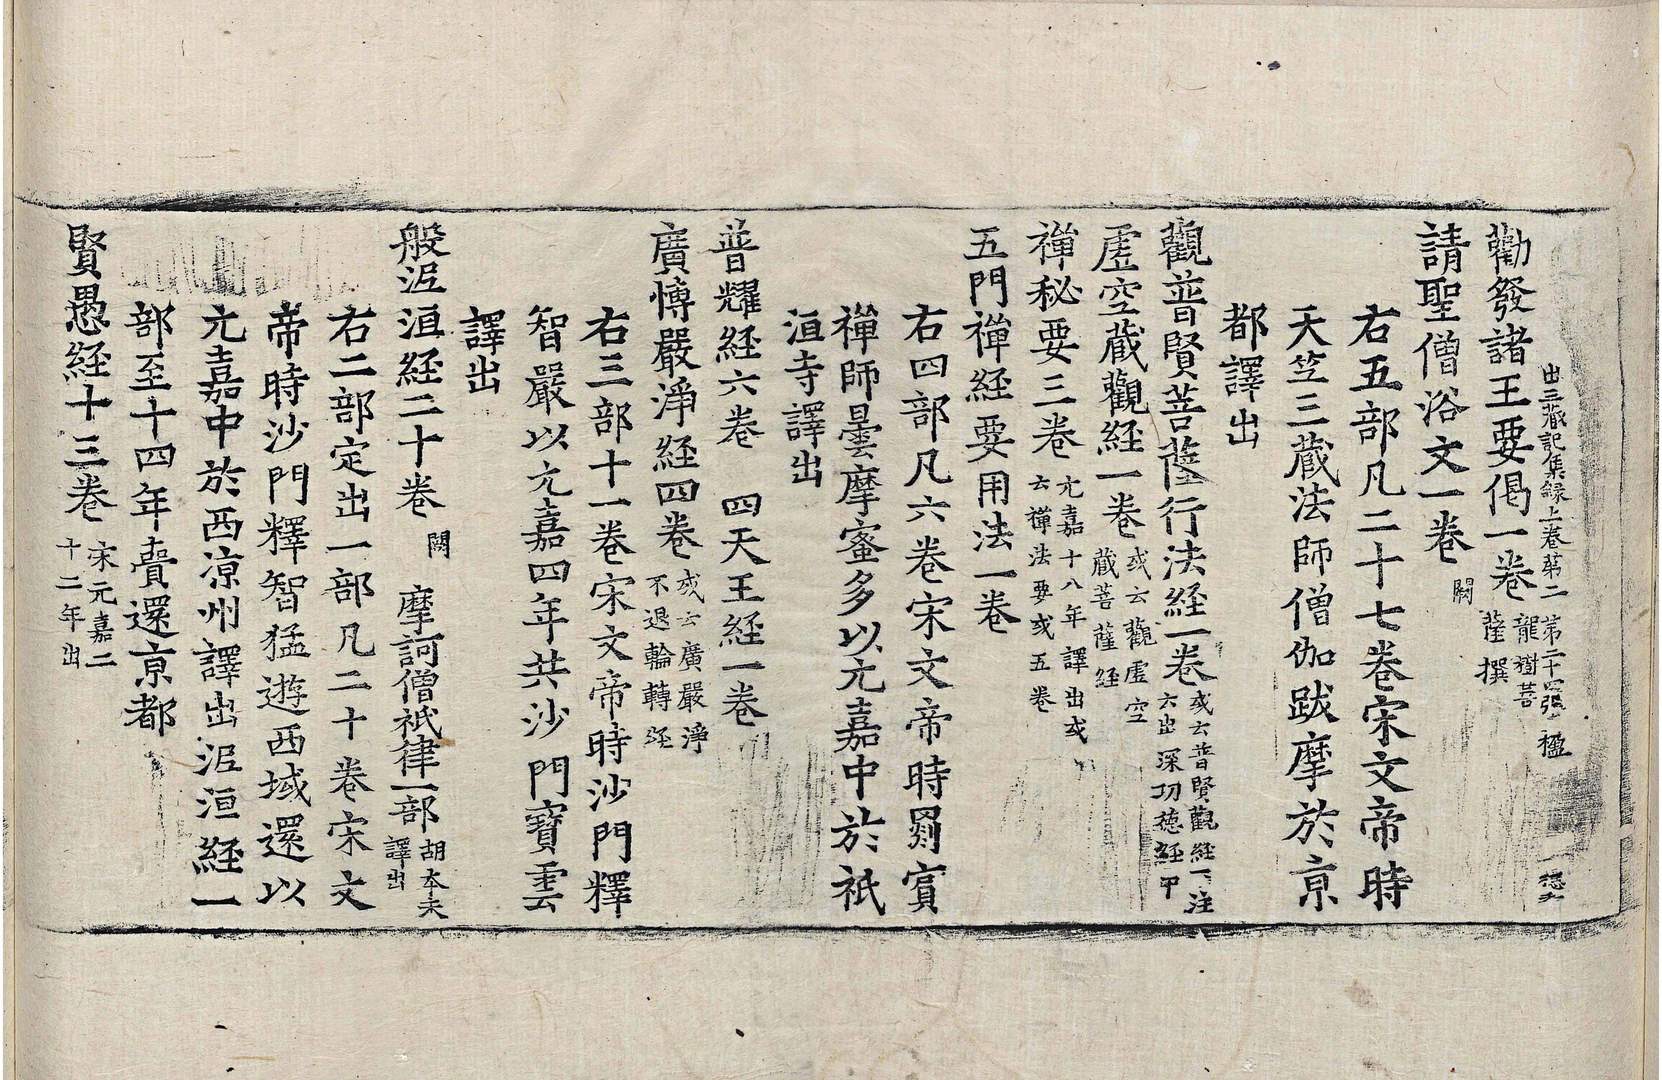 出三藏記集錄上卷第二 第二十四張 楹
勸發諸王要偈一卷 龍樹菩薩撰
請聖僧浴文一卷 闕
右五部凡二十七卷宋文帝時
天竺三藏法師僧伽跋摩於京
都譯出
觀普賢菩薩行法経一卷 或云普賢觀経下注六出深功德経中
虛空藏觀経一卷 或云觀虛空藏菩薩経
禪秘要三卷 元嘉十八年譯出或云禪法要或五卷
五門禪経要用法一卷
右四部凡六卷宋文帝時罽賓
禪師曇摩蜜多以元嘉中於祇
洹寺譯出
普耀経六卷 四天王経一卷
廣博嚴淨経四卷 或云廣嚴淨不退輪轉経
右三部十一卷宋文帝時沙門釋
智嚴以元嘉四年共沙門寶雲
譯出
般泥洹経二十卷 闕 摩訶僧祇律一部 胡本未譯出
右二部定出一部凡二十卷宋文
帝時沙門釋智猛遊西域還以
元嘉中於西涼州譯出泥洹経一
部至十四年賷還京都
賢愚経十三卷 宋元嘉二十二年出